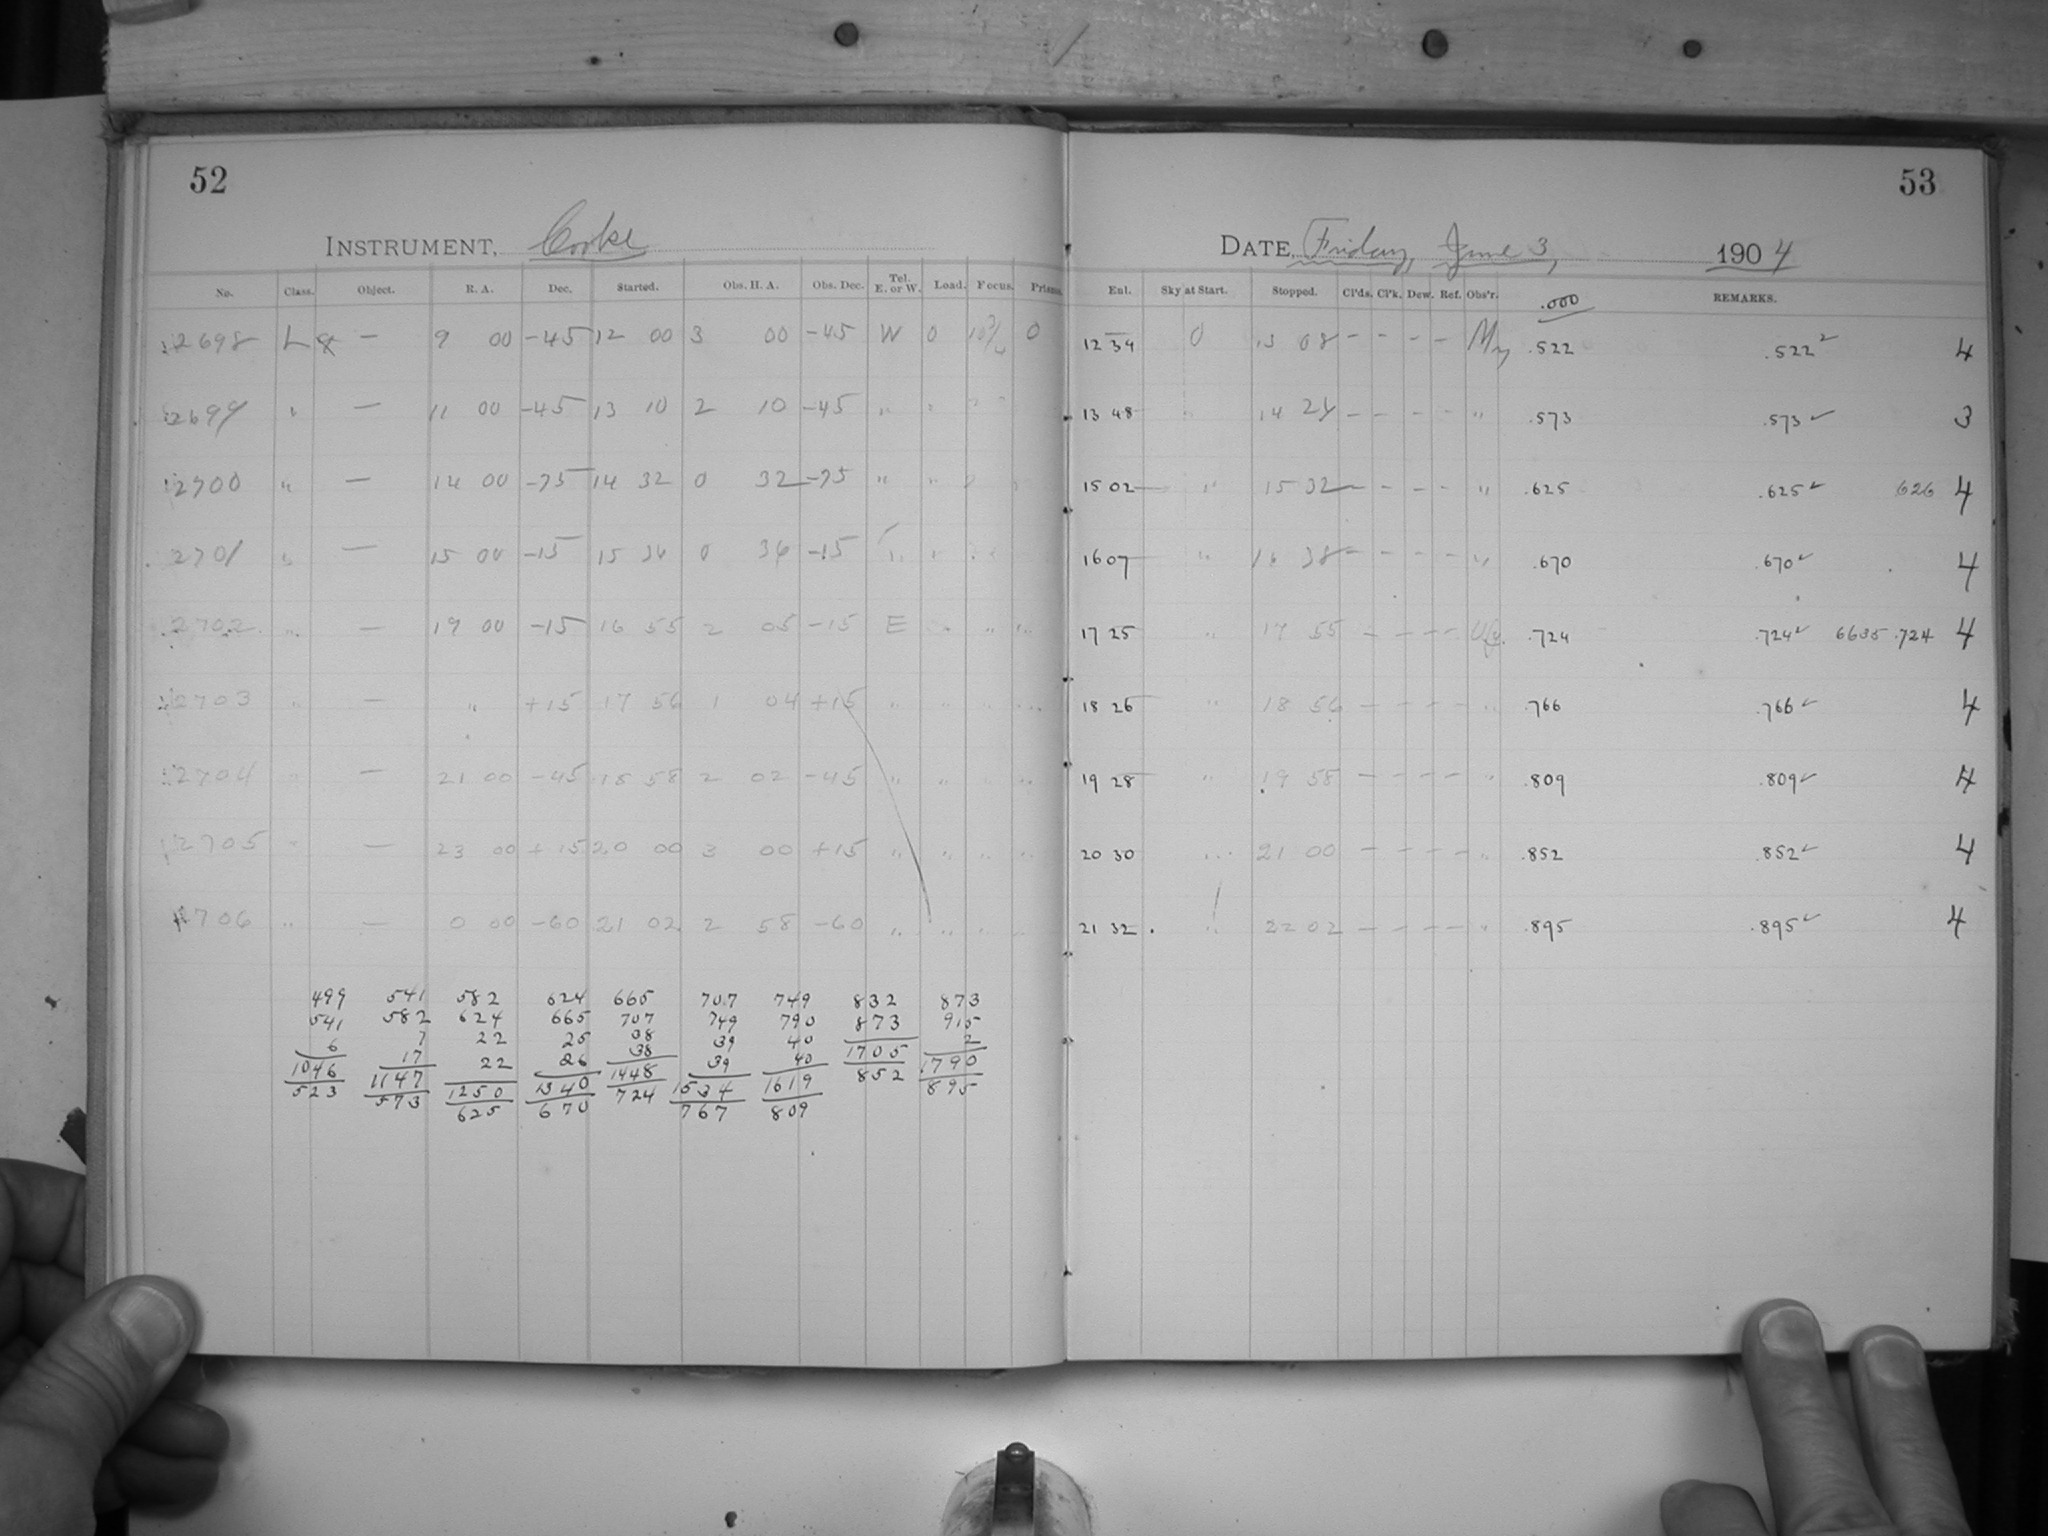 52
INSTRUMENT, Cooke
No. Class. Object. R. A. Dec. Started. Obs. H. A. Obs. Dec. Tel. E. or W. Load. Focus. Prisms.
2698 L — 9 00 -45 12 00 3 00 -45 W 0 0
2699 " — 11 00 -45 13 10 2 10 -45 " "
2700 " — 14 00 -75 14 32 0 32 -75 " "
2701 " — 15 00 -15 15 36 0 36 -15 " "
2702 " — 19 00 -15 16 55 2 05 -15 E " " "
2703 " — " +15 17 56 1 04 +15 " " " "
2704 " — 21 00 -45 18 58 2 02 -45 " " " "
2705 " — 23 00 +15 20 00 3 00 +15 " " " "
706 " — 0 00 -60 21 02 2 58 -60 " " " "
499 541 582 624 665 707 749 832 873
541 582 624 665 707 749 790 873 915
6 7 22 25 38 39 40 1705 2
1046 17 22 26 38 39 40 852 1790
523 1147 1250 1340 1448 1534 1619 895
573 625 670 724 767 809
53
DATE, Friday, June 3, 1904
Enl. Sky at Start. Stopped. Cl'ds. Cl'k. Dew. Ref. Obs'r. .000 REMARKS.
12 34 0 13 08 – – – – .522 .522 ✓ 4
13 48 " 14 24 – – – – " .573 .573 ✓ 3
15 02 " 15 32 – – – – " .625 .625 ✓ 626 4
16 07 " 16 38 – – – – " .670 .670 ✓ 4
17 25 " 17 55 – – – – .724 .724 ✓ 6635 .724 4
18 26 " 18 56 – – – – " .766 .766 ✓ 4
19 28 " 19 58 – – – – " .809 .809 ✓ 4
20 30 " 21 00 – – – – " .852 .852 ✓ 4
21 32 " 22 02 – – – – " .895 .895 ✓ 4